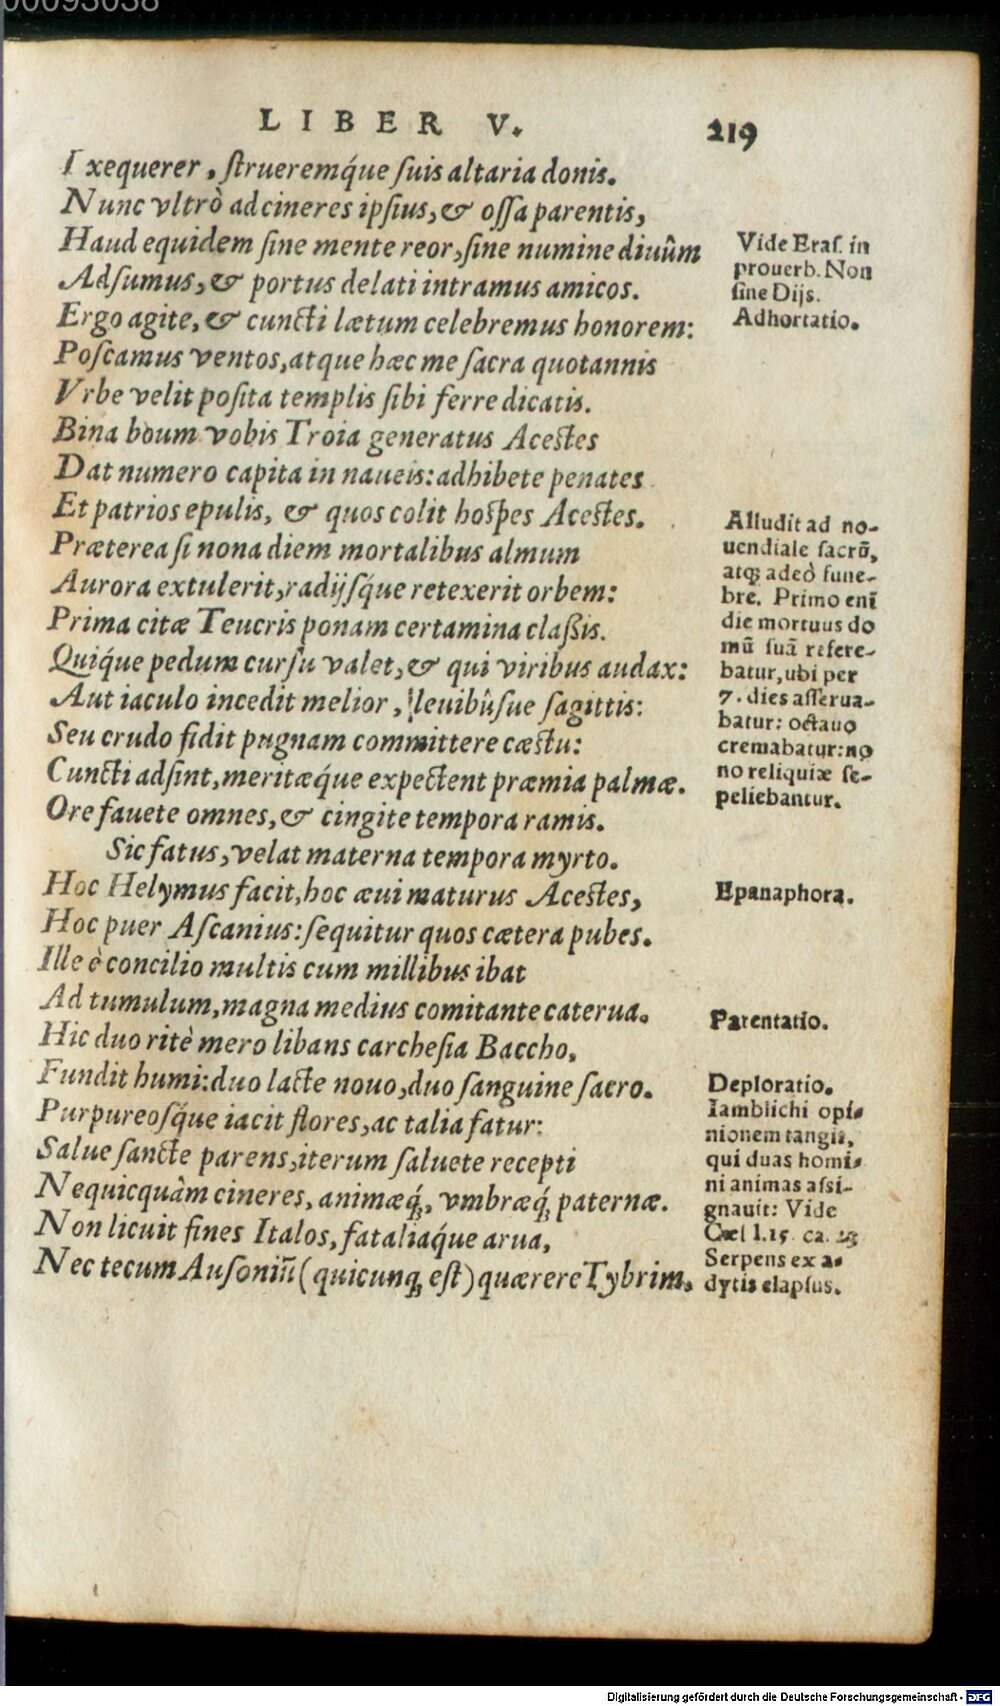 00093038
LIBER V.
219
Exequerer, ſtrueremq́ue ſuis altaria donis.
Nunc vltrò ad cineres ipſius, & oſſa parentis,
Haud equidem ſine mente reor, ſine numine diuûm
Adſumus, & portus delati intramus amicos.
Ergo agite, & cuncti lætum celebremus honorem:
Poſcamus ventos, atque hæc me ſacra quotannis
Vrbe velit poſita templis ſibi ferre dicatis.
Bina boum vobis Troia generatus Aceſtes
Dat numero capita in naueis: adhibete penates
Et patrios epulis, & quos colit hoſpes Aceſtes.
Præterea ſi nona diem mortalibus almum
Aurora extulerit, radijſq́ue retexerit orbem:
Prima citæ Teucris ponam certamina claßis.
Quiq́ue pedum curſu valet, & qui viribus audax:
Aut iaculo incedit melior, leuibûſue ſagittis:
Seu crudo fidit pugnam committere cæſtu:
Cuncti adſint, meritæq́ue expectent præmia palmæ.
Ore fauete omnes, & cingite tempora ramis.
Sic fatus, velat materna tempora myrto.
Hoc Helymus facit, hoc æui maturus Aceſtes,
Hoc puer Aſcanius: ſequitur quos cætera pubes.
Ille è concilio multis cum millibus ibat
Ad tumulum, magna medius comitante caterua.
Hic duo ritè mero libans carcheſia Baccho,
Fundit humi: duo lacte nouo, duo ſanguine ſacro.
Purpureoſq́ue iacit flores, ac talia fatur:
Salue ſancte parens, iterum ſaluete recepti
Nequicquàm cineres, animæq́;, vmbræq́; paternæ.
Non licuit fines Italos, fataliaq́ue arua,
Nec tecum Auſoniũ (quicunq; eſt) quærere Tybrim.
Vide Eraſ. in
prouerb. Non
ſine Dijs.
Adhortatio.
Alludit ad no-
uendiale ſacrũ,
atq; adeò fune-
bre. Primo enĩ
die mortuus do
mũ ſuã refere-
batur, ubi per
7. dies aſſerua-
batur: octauo
cremabatur: no
no reliquiæ ſe-
peliebantur.
Epanaphora.
Parentatio.
Deploratio.
Iamblichi opi-
nionem tangit,
qui duas homi-
ni animas aſsi-
gnauit: Vide
Cæl l.15. ca. 23
Serpens ex a-
dytis elapſus.
Digitalisierung gefördert durch die Deutsche Forschungsgemeinschaft - DFG